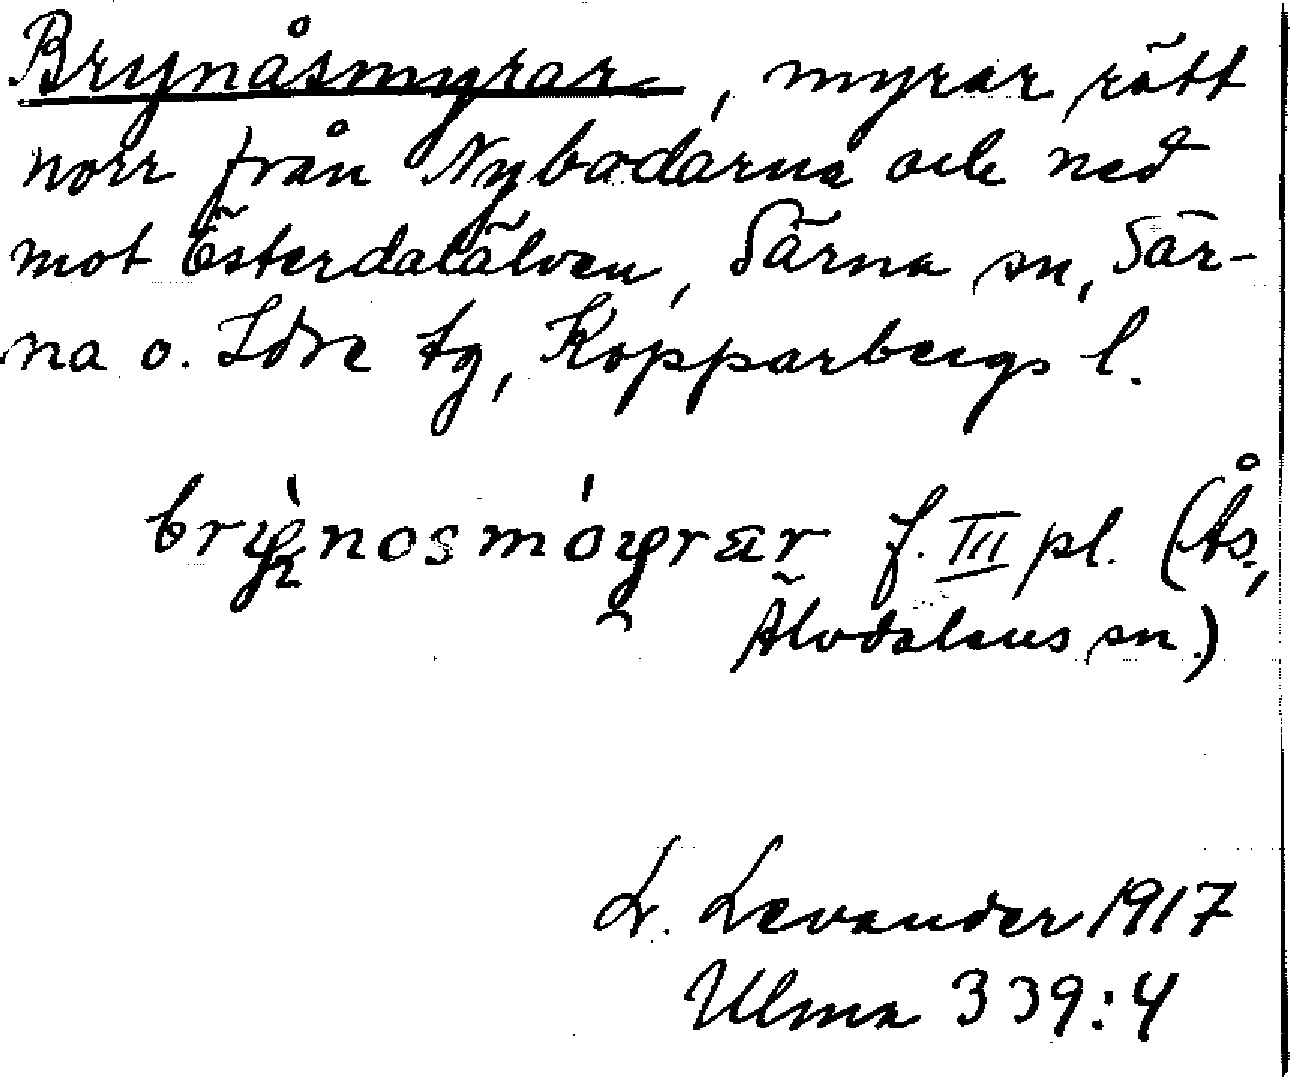 Brynåsmyrar, myrar rätt
norr från Nybodarna och ned
mot Österdalälven, Särna sn, Sär-
na o. Idre tg, Kopparbergs l.
f. III pl. (Ås,
Älvdalens sn.)
L. Levander 1917
Ulma 339:4